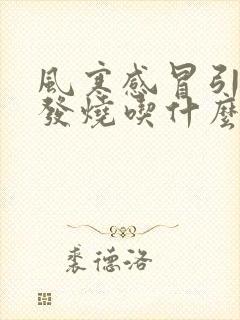 風寒感冒引
發燒喫什麼
裘德洛